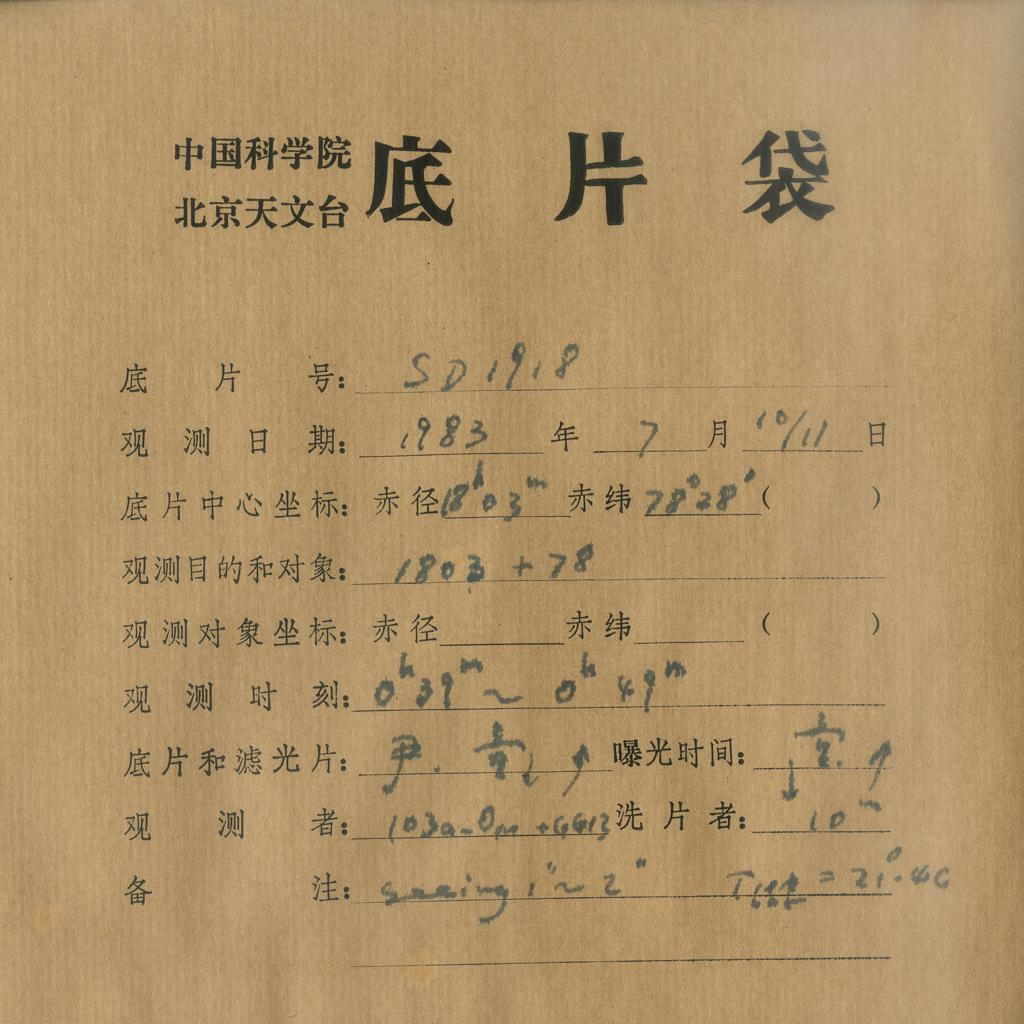 中国科学院
北京天文台
底片袋
底片号：SD1918
观测日期：1983年7月10/11日
底片中心坐标：赤径18h03m赤纬78°28'（ ）
观测目的和对象：1803+78
观测对象坐标：赤径 赤纬 （ ）
观测时刻：0h39m~0h49m
底片和滤光片：尹. ↑曝光时间：↓ ↑
观测者：103a-O 洗片者：10m
备注：seeing 1"~2" =21°.4C